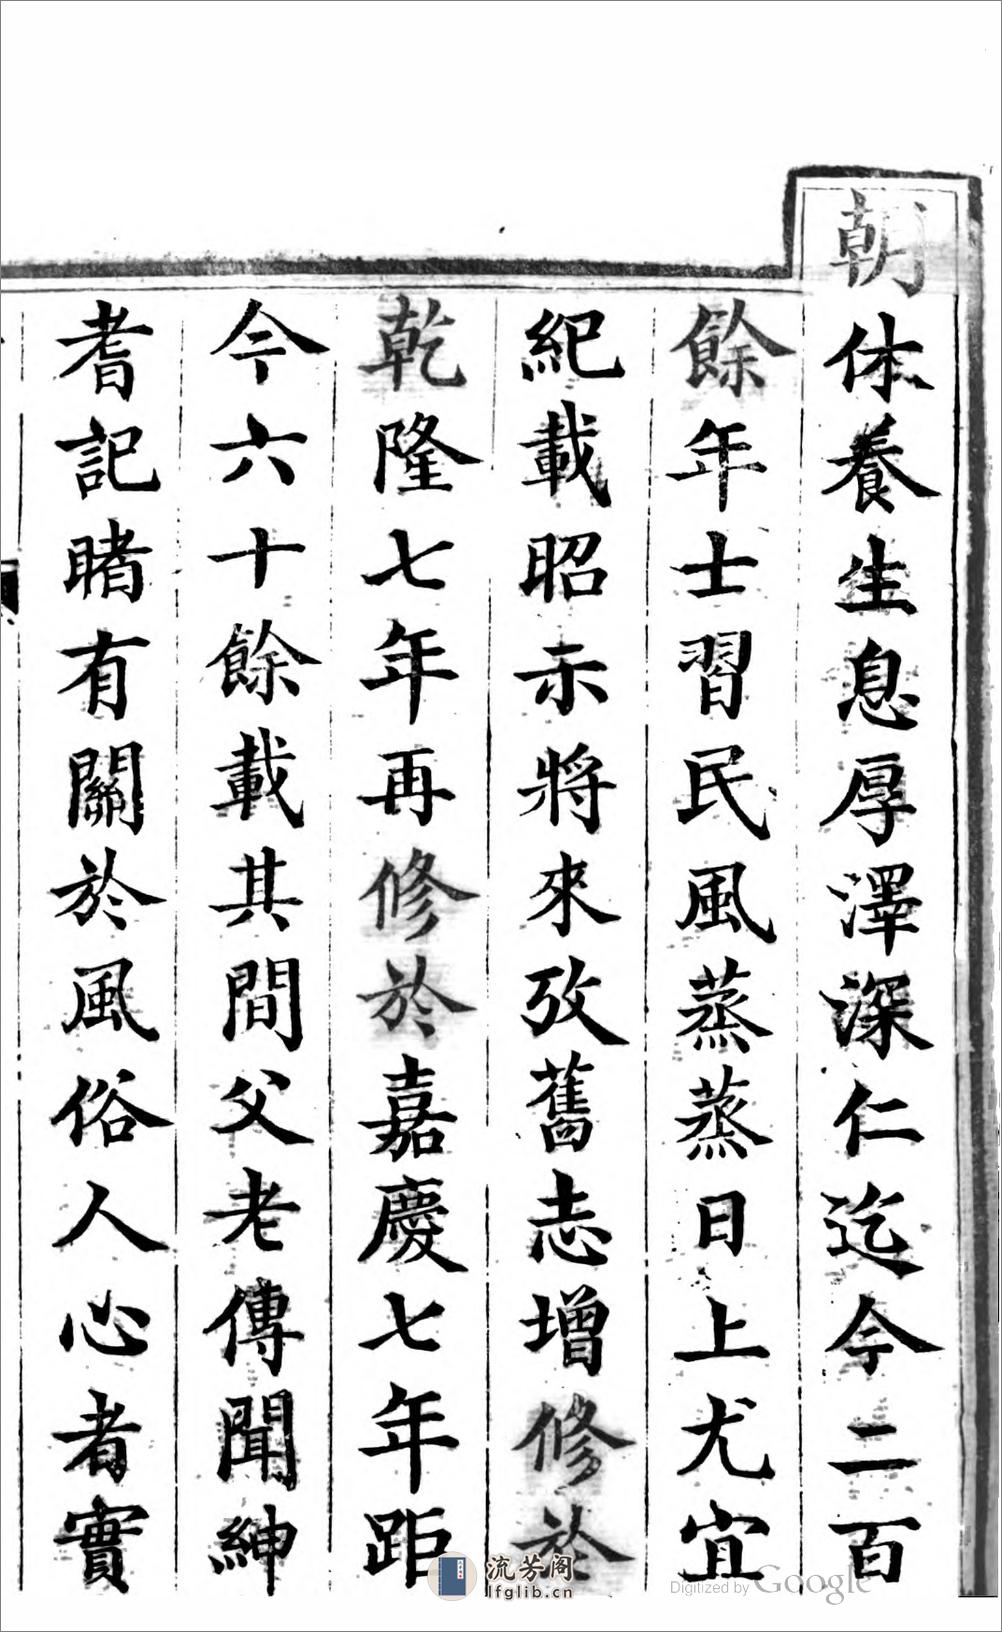 朝休養生息厚澤深仁迄今二百
餘年士習民風蒸蒸日上尤宜
紀載昭示將來攷舊志增修於
乾隆七年再修於嘉慶七年距
今六十餘載其間父老傳聞紳
耆記睹有關於風俗人心者實
流芳阁
lfglib.cn
Digitized by Google